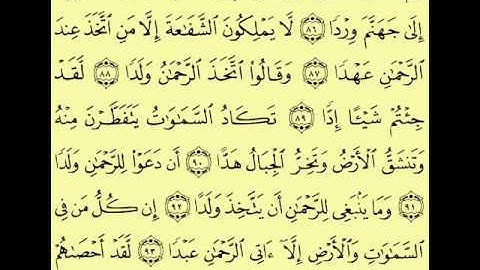 إِلَىٰ جَهَنَّمَ وِرْدًا ﴿٨٦﴾ لَّا يَمْلِكُونَ ٱلشَّفَٰعَةَ إِلَّا مَنِ ٱتَّخَذَ عِندَ
ٱلرَّحْمَٰنِ عَهْدًا ﴿٨٧﴾ وَقَالُوا۟ ٱتَّخَذَ ٱلرَّحْمَٰنُ وَلَدًا ﴿٨٨﴾ لَّقَدْ
جِئْتُمْ شَيْـًٔا إِدًّا ﴿٨٩﴾ تَكَادُ ٱلسَّمَٰوَٰتُ يَتَفَطَّرْنَ مِنْهُ
وَتَنشَقُّ ٱلْأَرْضُ وَتَخِرُّ ٱلْجِبَالُ هَدًّا ﴿٩٠﴾ أَن دَعَوْا۟ لِلرَّحْمَٰنِ وَلَدًا
﴿٩١﴾ وَمَا يَنۢبَغِى لِلرَّحْمَٰنِ أَن يَتَّخِذَ وَلَدًا ﴿٩٢﴾ إِن كُلُّ مَن فِى
ٱلسَّمَٰوَٰتِ وَٱلْأَرْضِ إِلَّآ ءَاتِى ٱلرَّحْمَٰنِ عَبْدًا ﴿٩٣﴾ لَّقَدْ أَحْصَىٰهُمْ